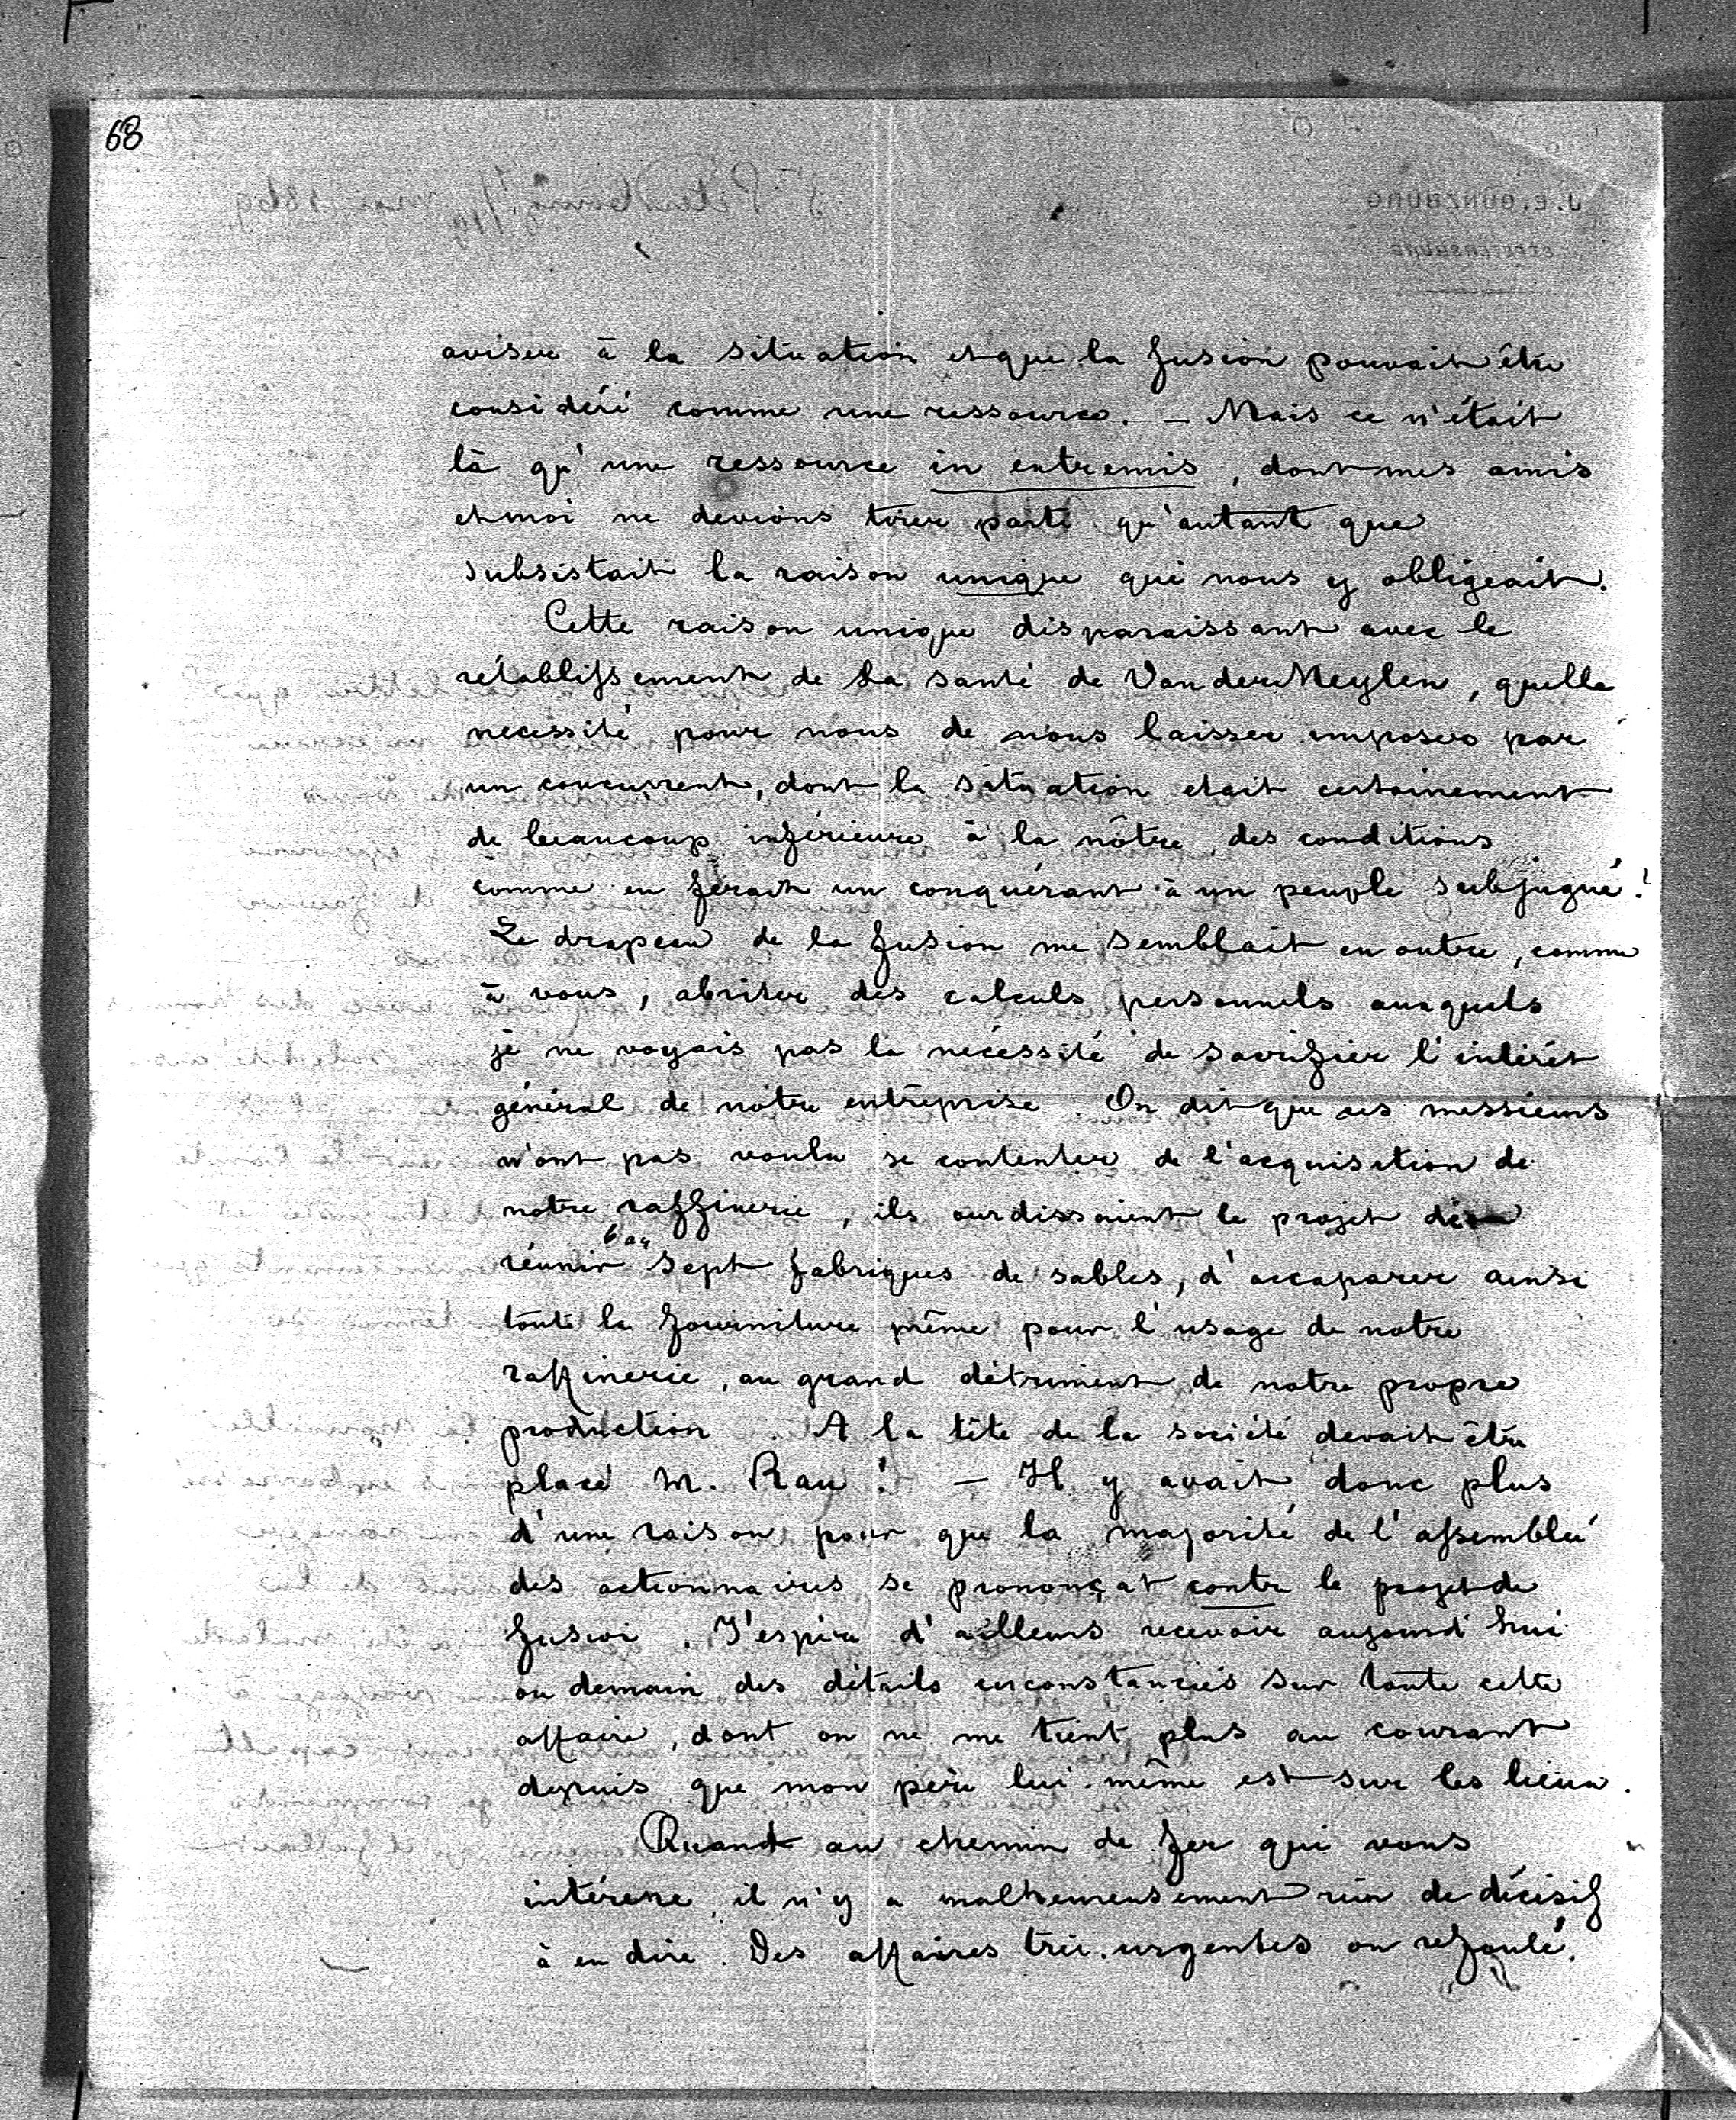 68
aviser à la situation et que la fusion pouvait être
considéré comme une ressource. — Mais ce n'était
là qu'une ressource in extremis, dont mes amis
et moi ne devions tirer parti qu'autant que
subsistait la raison unique qui nous y obligeait.
Cette raison unique disparaissant avec le
rétablissement de la santé de VanderMeylen, quelle
necessité pour nous de nous laisser imposer par
un concurrent, dont la situation etait certainement
de beaucoup inférieure à la nôtre des conditions
comme en ferait un conquérant à un peuple subjugué?
Le drapeau de la fusion me semblait en outre, comme
à vous, abriter des calculs personnels auxquels
je ne voyais pas la nécéssité de sacrifier l'intérêt
général de notre entreprise. On dit que ces messieurs
n'ont pas voulu se contenter de l'acquisition de
notre raffinerie, ils ourdissaient le projet de
réunir 6 ou sept fabriques de sables, d'accaparer ainsi
toute la fourniture même pour l'usage de notre
raffinerie, au grand détriment de notre propre
production. A la tête de la société devait être
placé M. Rau! — Il y avait donc plus
d'une raison pour que la majorité de l'assemblée
des actionnaires se prononçat contre le projet de
fusion. J'espère d'ailleurs recevoir aujourd'hui
ou demain des détails circonstanciés sur toute cette
affaire, dont on ne me tient plus au courant
depuis que mon père lui-même est sur les lieux.
Quant au chemin de fer qui vous
intéresse, il n'y a malheureusement rien de décisif
à en dire. Des affaires très-urgentes on refoulé,